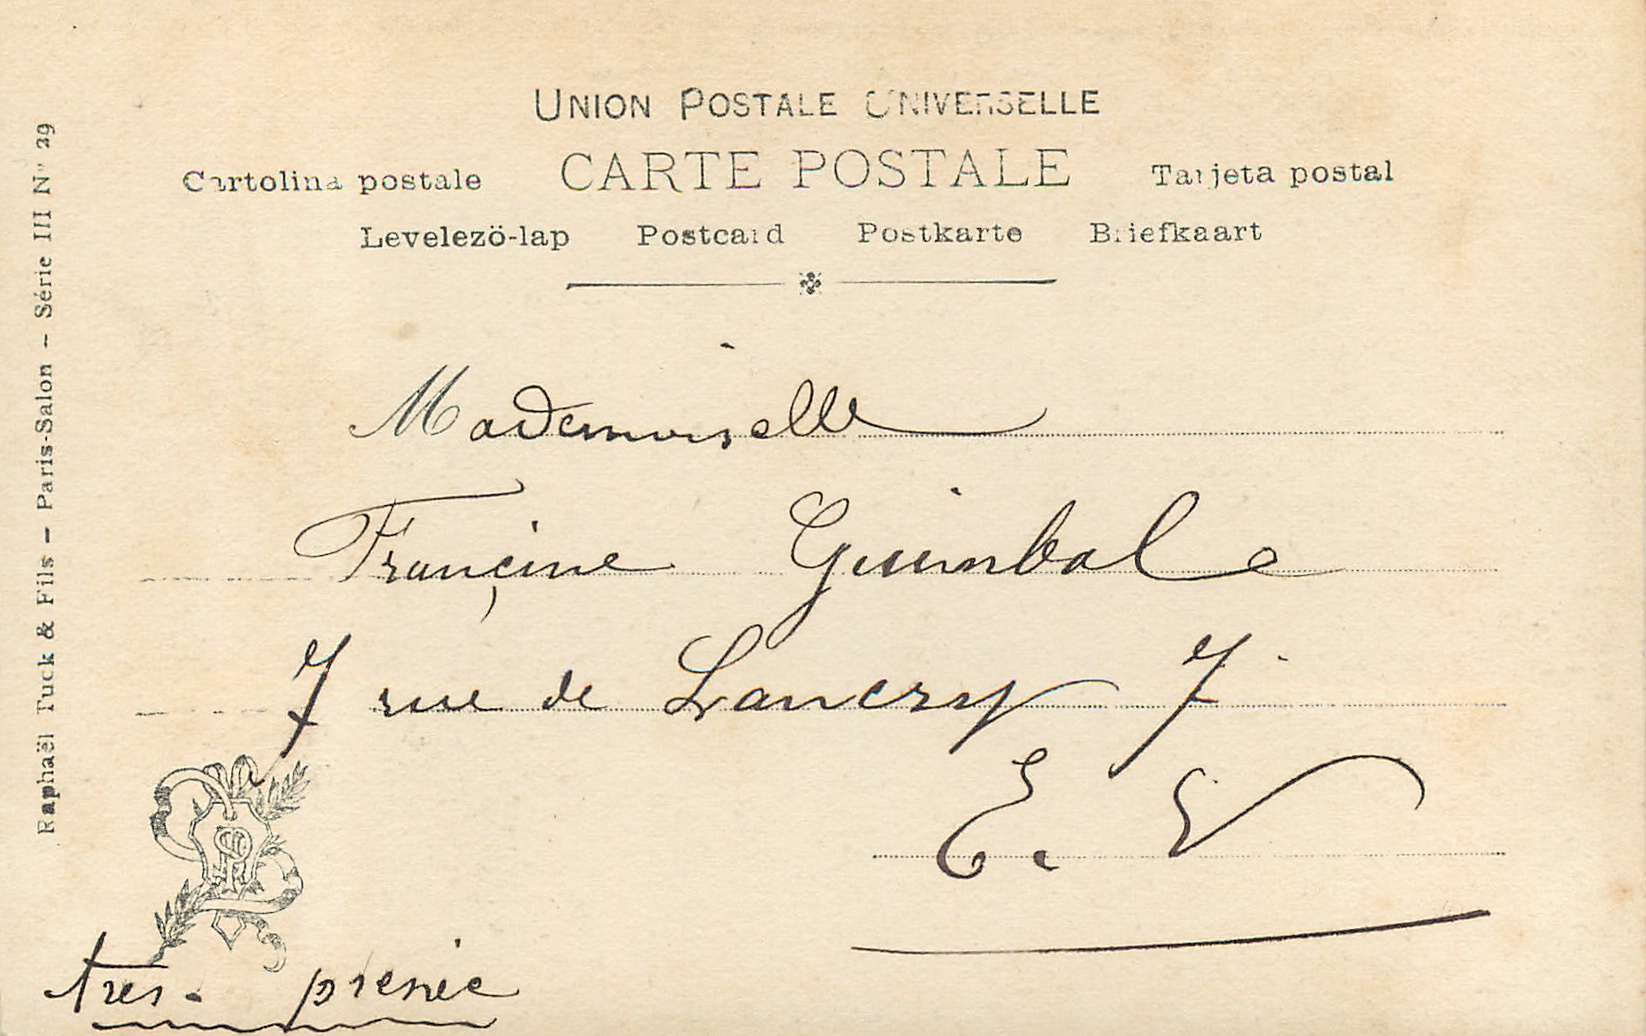 UNION POSTALE UNIVERSELLE
Cartolina postale CARTE POSTALE Tarjeta postal
Levelezö-lap Postcard Postkarte Briefkaart
Raphaël Tuck & Fils – Paris-Salon – Série III N° 29
Mademoiselle
Françine Guimbale
7 rue de Lancry 7.
E. V
très.